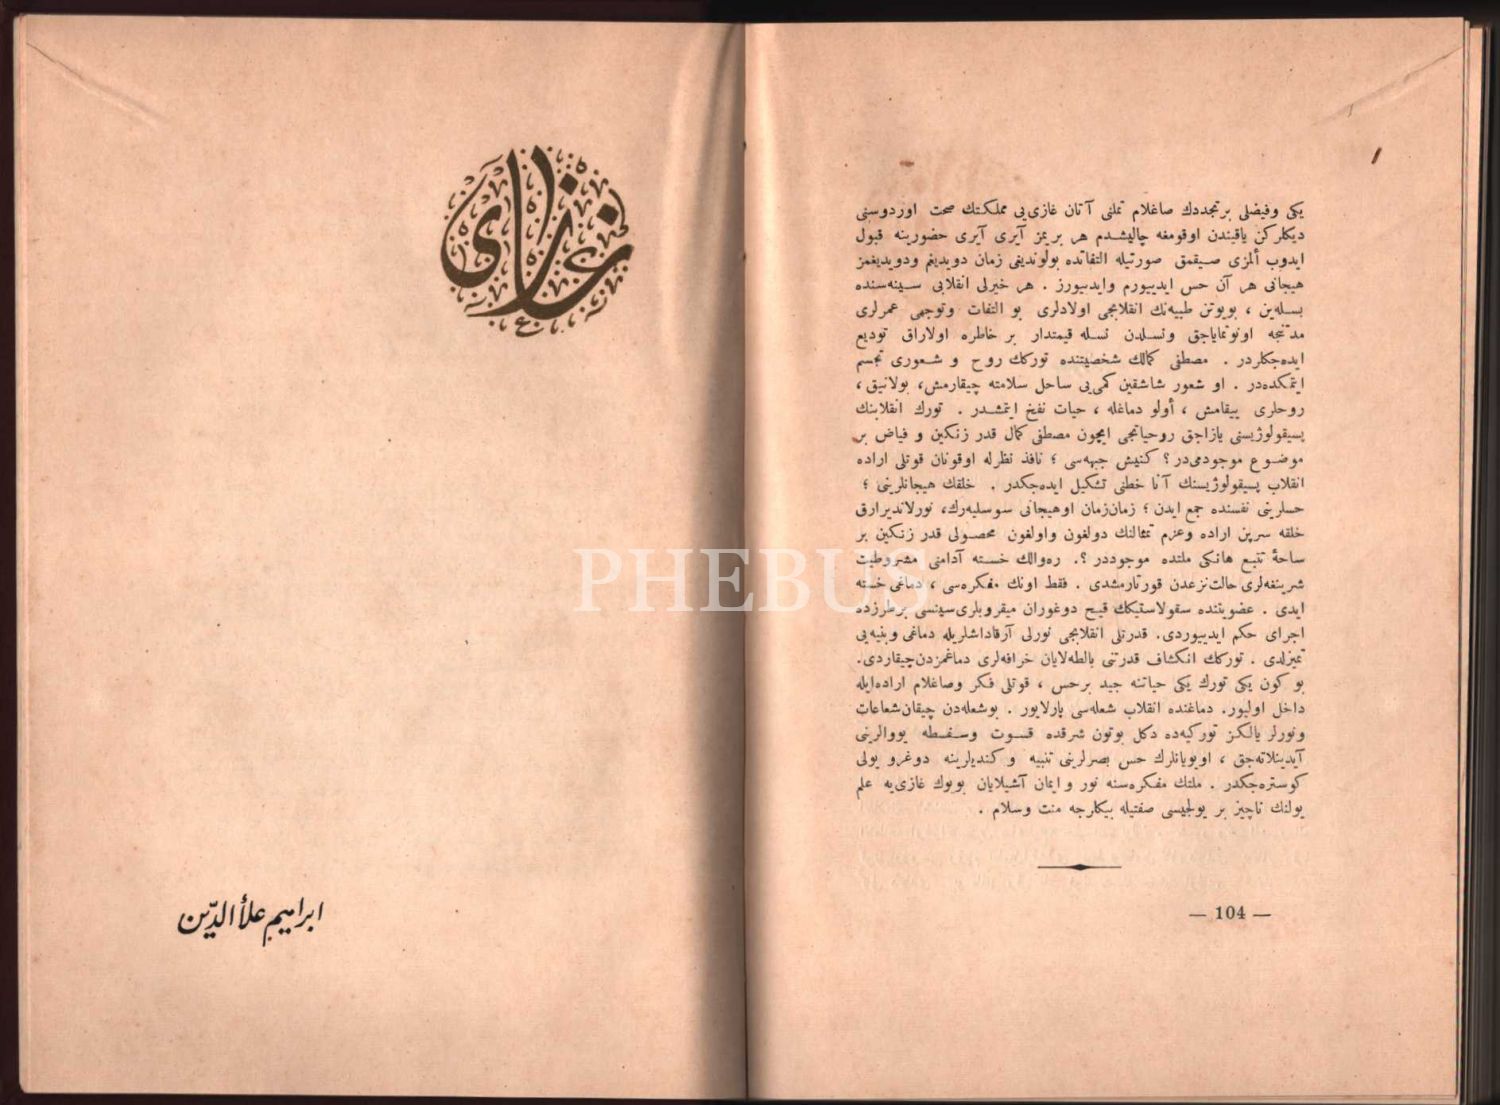 یکی وفیضلی برتجددك صاغلام تملنی آتان غازی‌یی مملکتك صحت اوردوسنی
دیکلرکن یاقیندن اوقومغه چالیشدم هر بریمز آیری آیری حضورینه قبول
ایدوب ألمزی صیقمق صورتیله التفاتده بولوندیغی زمان دویدیغم ودویدیغمز
هیجانی هر آن حس ایدییورم وایدییورز . هر خیرلی انقلابی سینه‌سنده
بسله‌ین ، بویوتن طبیه‌نك انقلابجی اولادلری بو التفات وتوجهی عمرلری
مدتنجه اونوتمایاجق ونسلدن نسله قیمتدار بر خاطره اولاراق تودیع
ایده‌جکلردر . مصطفی کمالك شخصیتنده تورکك روح و شعوری تجسم
ایتمکده‌در . او شعور شاشقین کمی‌یی ساحل سلامته چیقارمش، بولانیق ،
روحلری ییقامش ، أولو دماغله ، حیات نفخ ایتمشدر . تورك انقلابنك
پسیقولوژیسنی یازاجق روحیاتجی ایچون مصطفی کمال قدر زنکین و فیاض بر
موضوع موجودمی‌در؟ کنیش جبهه‌سی ؛ نافذ نظرله اوقونان قوتلی اراده
انقلاب پسیقولوژیسنك آنا خطنی تشکیل ایده‌جکدر . خلقك هیجانلرینی ؛
حسلرینی نفسنده جمع ایدن ؛ زمان‌زمان اوهیجانی سوسلیه‌رك، نورلاندیرارق
خلقه سرپن اراده وعزم تمثالنك دولغون واولغون محصولی قدر زنکین بر
ساحهٔ تتبع هانکی ملتده موجوددر ؟. ره‌والك خسته آدامنی مشروطیت
شرینغه‌لری حالت‌نزعدن قورتارمشدی . فقط اونك مفکره‌سی ، دماغی خسته
ایدی . عضویتنده سقولاستیکك قبیح دوغوران میقروبلری‌سینسی برطرزده
اجرای حکم ایدییوردی. قدرتلی انقلابجی نورلی آرقاداشلریله دماغی وبنیه‌یی
تمیزلدی . تورکك انکشاف قدرتنی بالطه‌لایان خرافه‌لری دماغمزدن‌چیقاردی.
بو کون یکی تورك یکی حیاتنه جید برحس ، قوتلی فکر وصاغلام اراده‌ایله
داخل اولیور. دماغنده انقلاب شعله‌سی پارلایور . بوشعله‌دن چیقان‌شعاعات
ونورلر یالکز تورکیه‌ده دکل بوتون شرقده قسوت وسفسطه یووالرینی
آیدینلاته‌جق ، اویویانلرك حس بصرلرینی تنبیه و کندیلرینه دوغرو یولی
کوستره‌جکدر . ملتك مفکره‌سنه نور و ایمان آشیلایان بویوك غازی‌یه علم
یولنك ناچیز بر یولجیسی صفتیله بیکلرجه منت وسلام .
— 104 —
غازی
ابراهیم علاء الدّین
PHEBUS